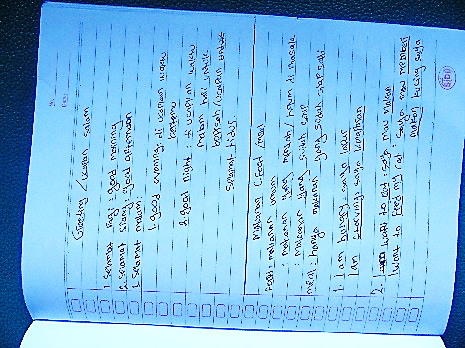 Greeting / ucapan salam
1. selamat pagi : good morning
2. selamat siang : good afternoon
3. selamat malam
1. good evening : di ucapkan waktu
bertemu
2. good night : di ucapkan waktu
malam hari untuk
berpisah / ucapan untuk
selamat tidur
Makanan (Food / meal)
Food : makanan umum
: makanan yang mentah / belum di masak
: makanan yang sudah jadi
meal : hanya makanan yang sudah siap saji
1. I am hungry : saya lapar
I am starving : saya kelaparan
2. I want to eat : saya mau makan
I want to feed my cat : saya mau memberi
makan kucing saya